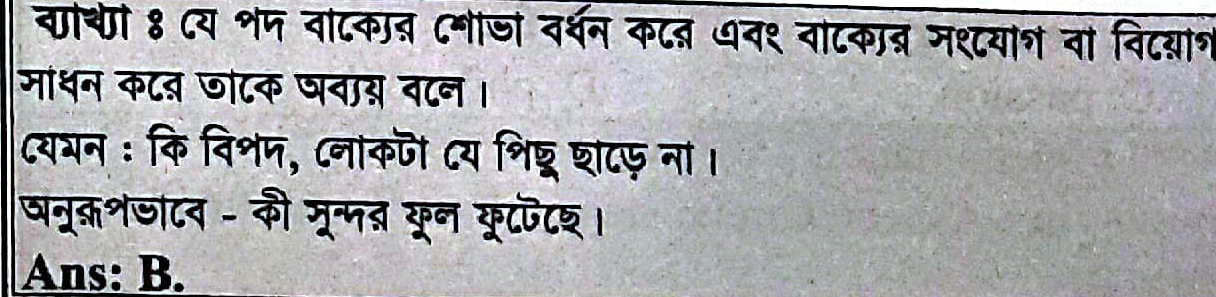 ব্যাখ্যা ঃ যে পদ বাক্যের শোভা বর্ধন করে এবং বাক্যের সংযোগ বা বিয়োগ
সাধন করে তাকে অব্যয় বলে।
যেমন : কি বিপদ, লোকটা যে পিছু ছাড়ে না।
অনুরূপভাবে - কী সুন্দর ফুল ফুটেছে।
Ans: B.